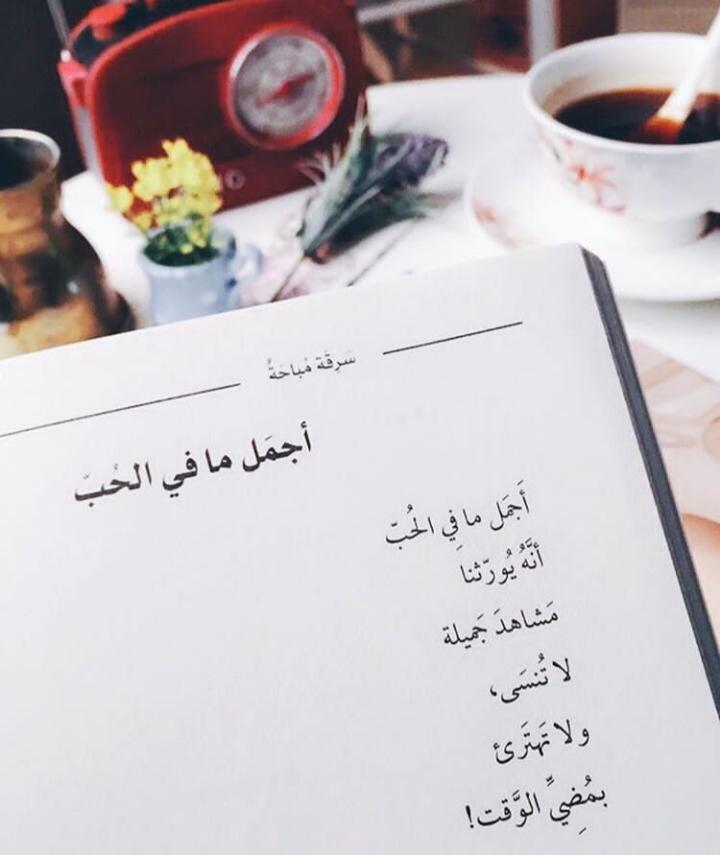 سَرِقَة مُباحَةٌ
أجمَل ما في الحُبّ
أَجمَل ما فِي الحُبّ
أنَّهُ يُورّثنا
مَشاهدَ جَميلة
لا تُنسَى،
ولا تَهتَرَئ
بمُضِيِّ الوَّقت!